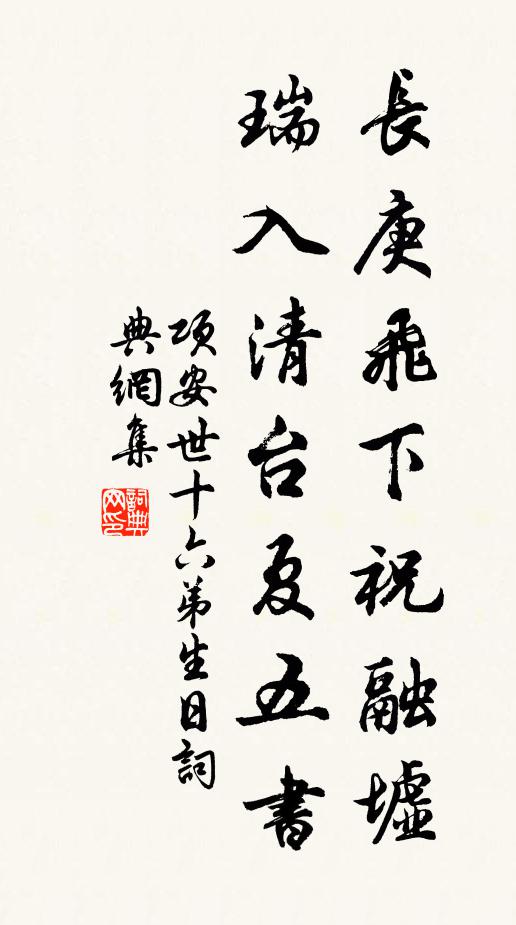 長庚飛下祝融墟
瑞入清台夏五書
項安世十六弟生日詞
典網集
詞典网印